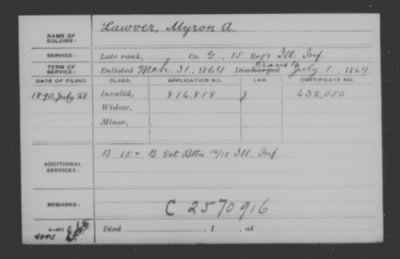 NAME OF SOLDIER: Lawver, Myron A.
SERVICE: Late rank, Co. G, 15 Reg't Ill. Inf
TERM OF SERVICE: Enlisted Mch. 31, 1864 Discharged July 1, 1864
DATE OF FILING. CLASS. APPLICATION NO. LAW. CERTIFICATE NO.
1890, July 28 Invalid, 816,858 J 632,050
Widow,
Minor,
ADDITIONAL SERVICES: B 15 & B Vet Battn 14/15 Ill. Inf
REMARKS: C 2570916
Died , 1 , at